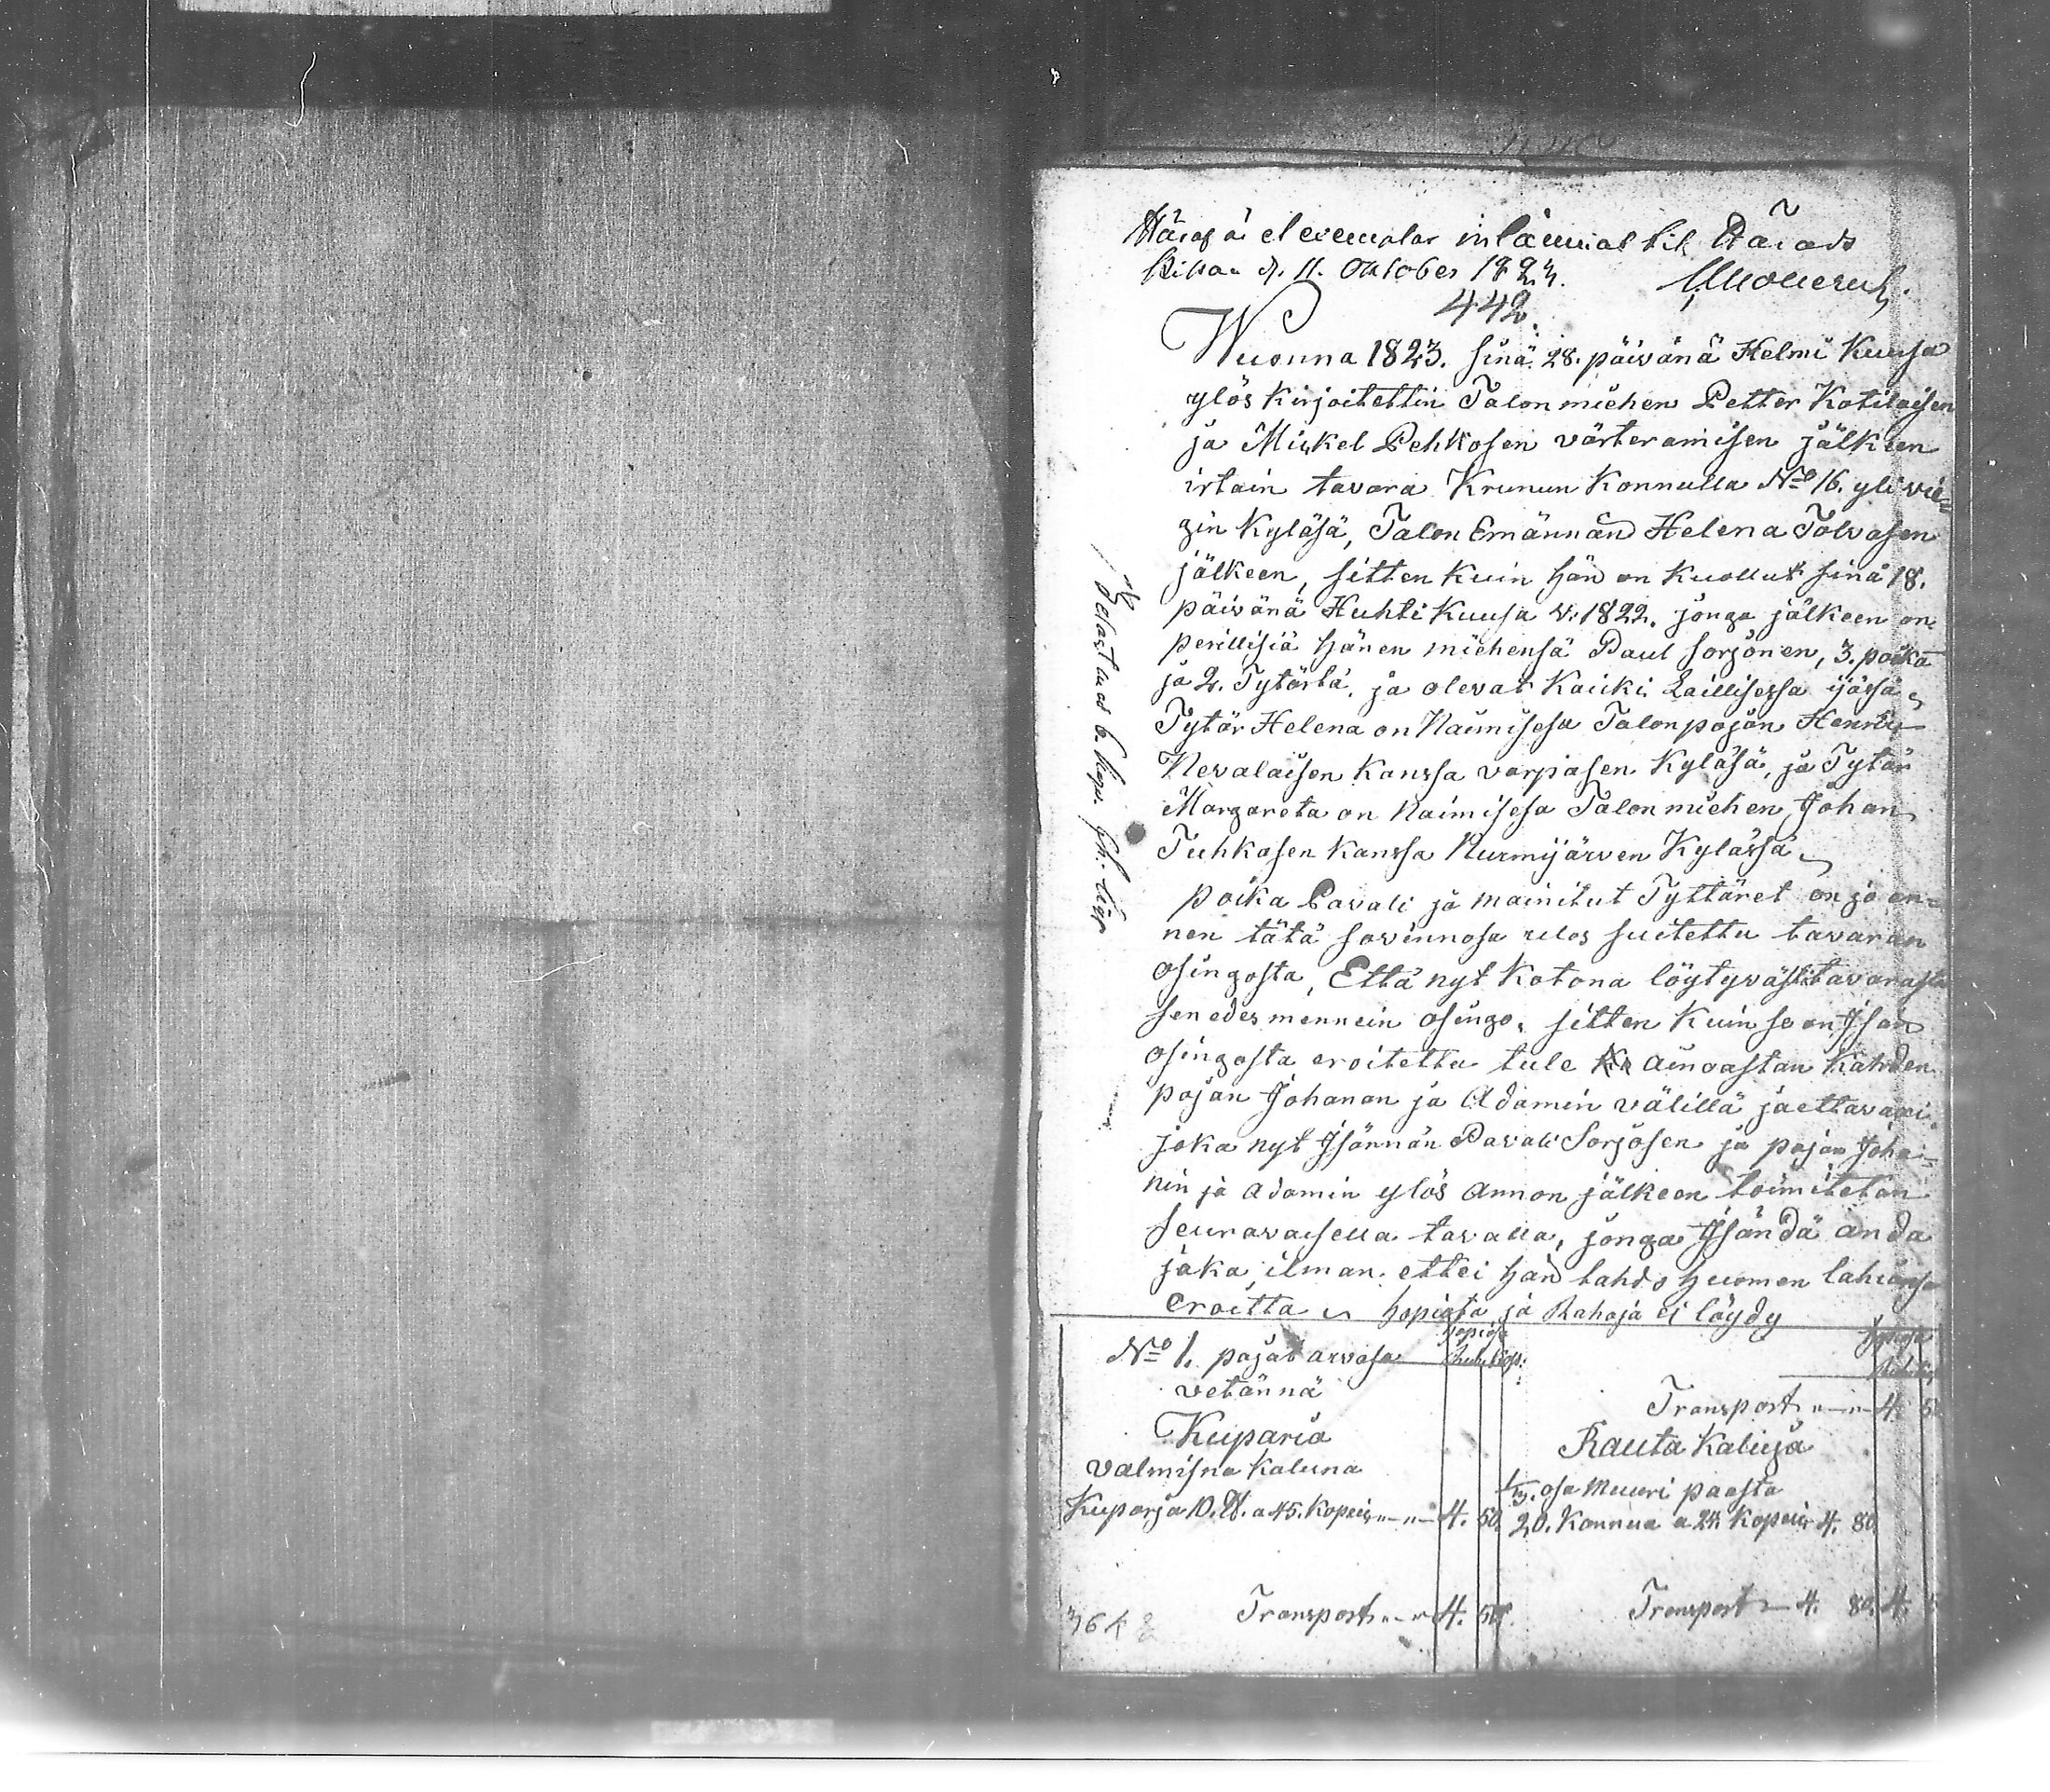 Häraf är et exemplar inlämnat til Härads
Kistan d. 11. Oktober 1823.
442.
Wuonna 1823. sinä 28. päivänä Helmi Kuusa
ylös kirjoitettin Talon miehen Petter Kotilaisen
ja Mickel Pehkosen värteramisen jälkeen
irtain tavara Krunun Konnulla No 16. yli vie-
gin Kyläsä, Talon Emännän Helena Tolvasen
jälkeen, sitten kuin hän on kuollut sinä 18.
päivänä Huhti Kuusa v: 1822. jonga jälkeen on
perillisiä hänen miehensä Paul Sorjonen, 3. poika
ja 2. Tytärtä, ja olevat kaicki Laillisessa ijässä,
Tytär Helena on Naimisesa Talonpojan Henrik
Nevalaisen kanssa varpasen Kyläsä, ja Tytär
Margareta on Naimisesa Talon miehen Johan
Tuhkasen kanssa Nurmijärven Kylässä
poika Pavali ja mainitut Tyttäret on jo en-
nen tätä sovinnosa ulos suitettu tavaran
osingosta, Että nyt kotona löytyvästä tavarasta
sen edes mennein osingo, sitten kuin se on Isän
osingosta eroitettu tule ainoastan kahden
pojan Johanan ja Adamin välillä jaettavaxi
joka nyt Isännän Pavali Sorjosen ja pojan Joha-
nin ja Adamin ylös annon jälkeen toimitetan
seuravaisella tavalla, jonga Isändä anda
jaka, ilman. ettei hän tahdo huomen lahiansa
eroitta hopiata ja Rahaja ei löydy
No 1. pojat arvosa
vetännä
Kuparia
valmisna kaluna
Kuparja 10. ℔. a 45. Kopeic 4. 50
Transport 4. 50
hopiasa
Transport 4. 5
Rauta Kaluja
1/3. osa Muuri paasta
20. Kannua a 24 Kopeic 4. 80
Transport 4. 80. 4. 5
Belastad 6. kop.